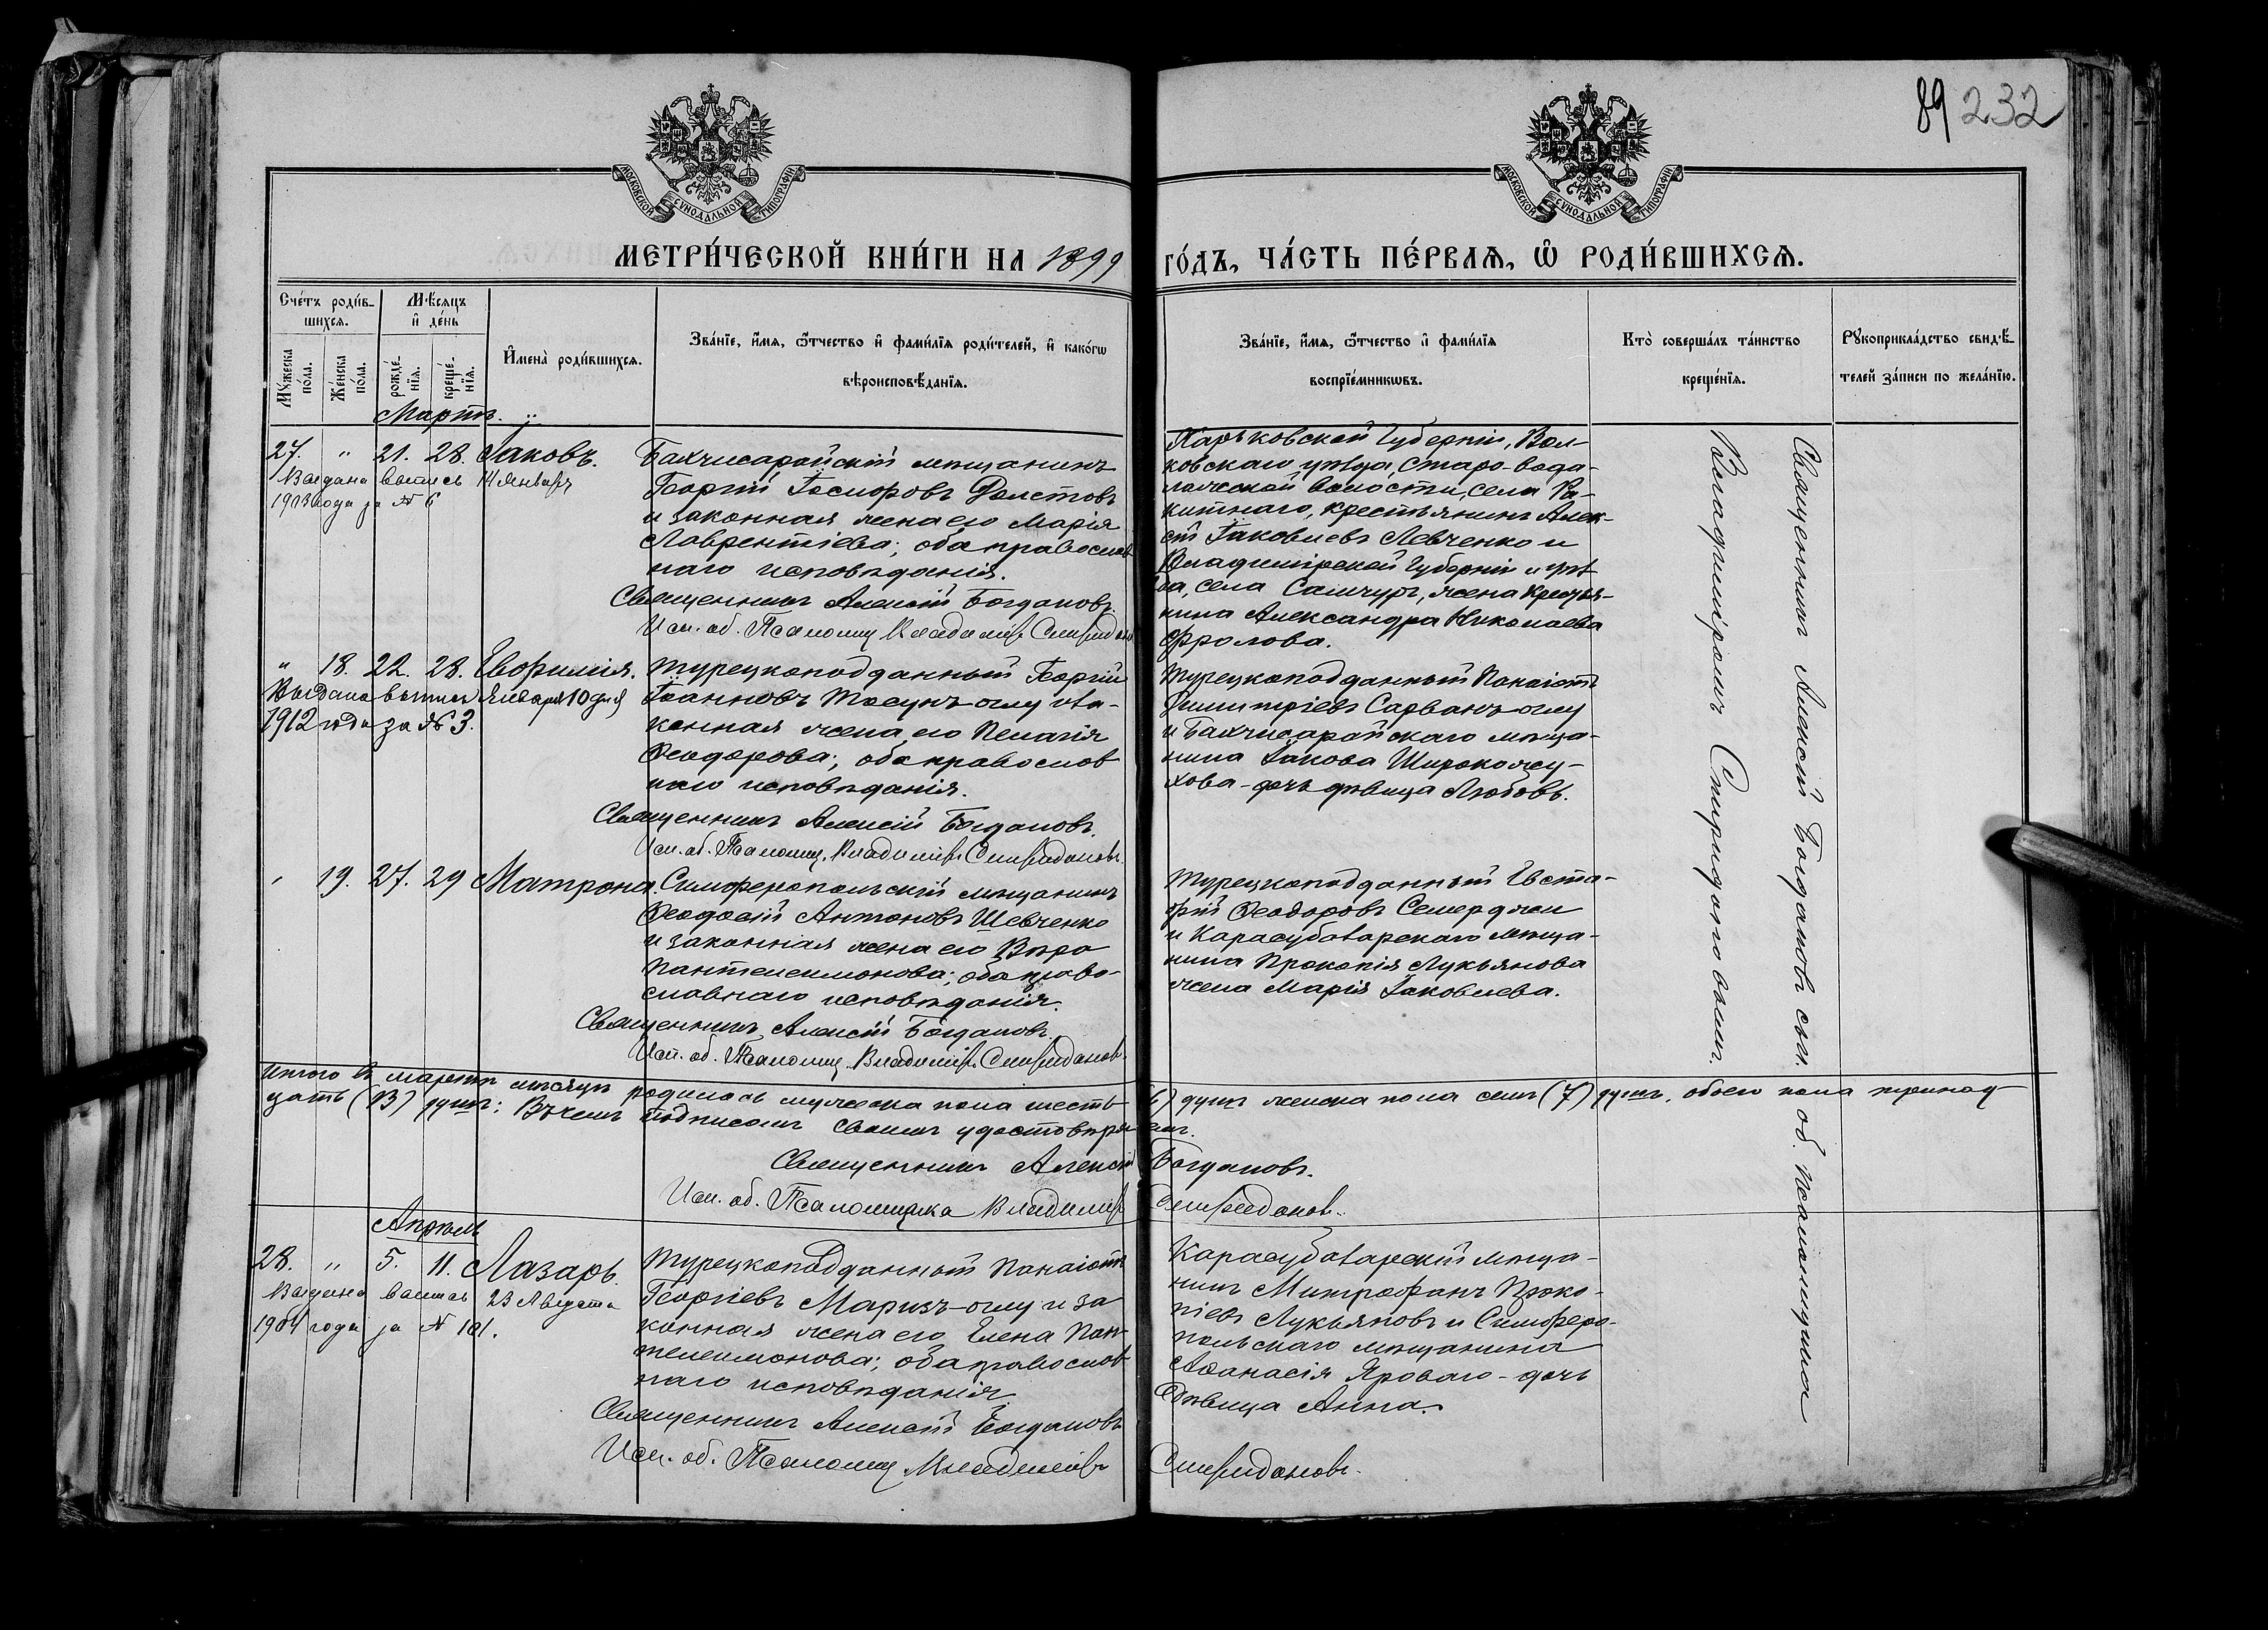 89 232
МОСКОВСКОЙ СѴНОДАЛЬНОЙ ТИПОГРАФІИ
МОСКОВСКОЙ СѴНОДАЛЬНОЙ ТИПОГРАФІИ
МЕТРИ́ЧЕСКОЙ КНИ́ГИ НА 1899 ГО́ДЪ, ЧА́СТЬ ПЕ́РВАѦ, Ѽ РОДИ́ВШИХСѦ.
Сче́тъ роди́в-
шихсѧ.
Мꙋ́жеска по́ла.
Же́нска по́ла.
Мѣ́сѧцъ
и҆ де́нь
рожде́нїѧ.
креще́нїѧ.
И҆мена̀ роди́вшихсѧ.
Зва́нїе, и҆́мѧ, ѻ҆́тчество и҆ фами́лїѧ роди́телей, и҆ како́гѡ
вѣроисповѣ́данїѧ.
Зва́нїе, и҆́мѧ, ѻ҆́тчество и҆ фами́лїѧ
воспрїе́мникѡвъ.
Кто̀ соверша́лъ та́инство
креще́нїѧ.
Рꙋкоприкла́дство свидѣ́-
телей за́писи по жела́нїю.
Мартъ.
27. " 21. 28. Іаковъ.
Выдана выпись 14 Января
1913 года за № 6
Бахчисарайскій мѣщанинъ
Георгій
и законная жена его Марія
Лаврентіева; оба православ
наго исповѣданія.
Священникъ Алексій Богдановъ.
Исп. об. Псаломщ. Владиміръ Спиридонов
Харьковской Губерніи, Вал-
ковскаго уѣзда, Старо-вода-
лажской волости, села Ра-
китнаго, крестьянинъ Алек-
сій Іаковлевъ Левченко и
Владимірской Губерніи и уѣз
да, села жена крестья-
нина Александра Николаева
Фролова.
" 18. 22. 28. Евфимія.
Выдана выпись Января 10 дня
1912 года за № 3.
Турецкоподданный Георгій
Іоанновъ Тосунъ-оглу и за-
конная жена его Пелагія
Ѳеодорова; оба православ
наго исповѣданія.
Священникъ Алексій Богдановъ.
Исп. об. Псаломщ. Владиміръ Спиридоновъ.
Турецкоподданный Панаіотъ
Димитріевъ Сарванъ-оглу
и Бахчисарайскаго мѣща-
нина Іакова
хова - дочь дѣвица Любовь.
" 19. 27. 29 Матрона.
Симферопольскій мѣщанинъ
Ѳеодосій Антоновъ Шевченко
и законная жена его Вѣра
Пантелеимонова; оба право-
славнаго исповѣданія.
Священникъ Алексій Богдановъ.
Исп. об. Псаломщ. Владиміръ Спиридоновъ.
Турецкоподданный Евста-
фій Ѳеодоровъ Семерджи
и Карасубазарскаго мѣща-
нина Прокопія Лукьянова
жена Марія Іаковлева.
Итого въ мартѣ мѣсяцѣ родилось мужеска пола шесть (6) душъ женска пола семь (7) душъ, обоего пола тринад
цать (13) душъ: Въ чемъ подписомъ своимъ удостовѣряемъ.
Священникъ Алексій Богдановъ.
Исп. об. Псаломщика Владиміръ Спиридоновъ.
Апрѣль
28. " 5. 11. Лазарь.
Выдана выпись 23 Августа
1904 года за № 101.
Турецкоподданный Панаіотъ
Георгіевъ и за
конная жена его Елена Пан-
телеимонова; оба православ
наго исповѣданія
Священникъ Алексій Богдановъ
Исп. об. Псаломщ. Владиміръ Спиридоновъ.
Карасубазарскій мѣща-
нинъ Митрофанъ Проко-
піевъ Лукьяновъ и Симферо-
польскаго мѣщанина
Аѳанасія Яроваго - дочь
дѣвица Анна.
Священникъ Алексій Богдановъ съ и. об. псаломщика
Владиміромъ Спиридоновымъ.